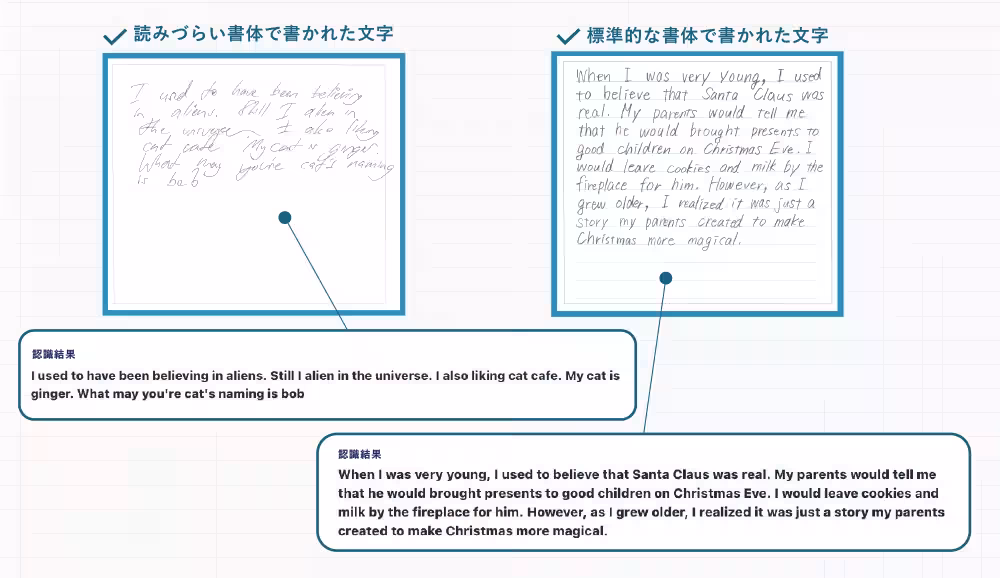 読みづらい書体で書かれた文字
標準的な書体で書かれた文字
I used to have been believing
in aliens. Still I alien in
the universe I also liking
cat cafe My cat is ginger.
What may you're cat's naming
is bob
When I was very young, I used
to believe that Santa Claus was
real. My parents would tell me
that he would brought presents to
good children on Christmas Eve. I
would leave cookies and milk by the
fireplace for him. However, as I
grew older, I realized it was just a
story my parents created to make
Christmas more magical.
認識結果
I used to have been believing in aliens. Still I alien in the universe. I also liking cat cafe. My cat is
ginger. What may you're cat's naming is bob
認識結果
When I was very young, I used to believe that Santa Claus was real. My parents would tell me
that he would brought presents to good children on Christmas Eve. I would leave cookies and
milk by the fireplace for him. However, as I grew older, I realized it was just a story my parents
created to make Christmas more magical.